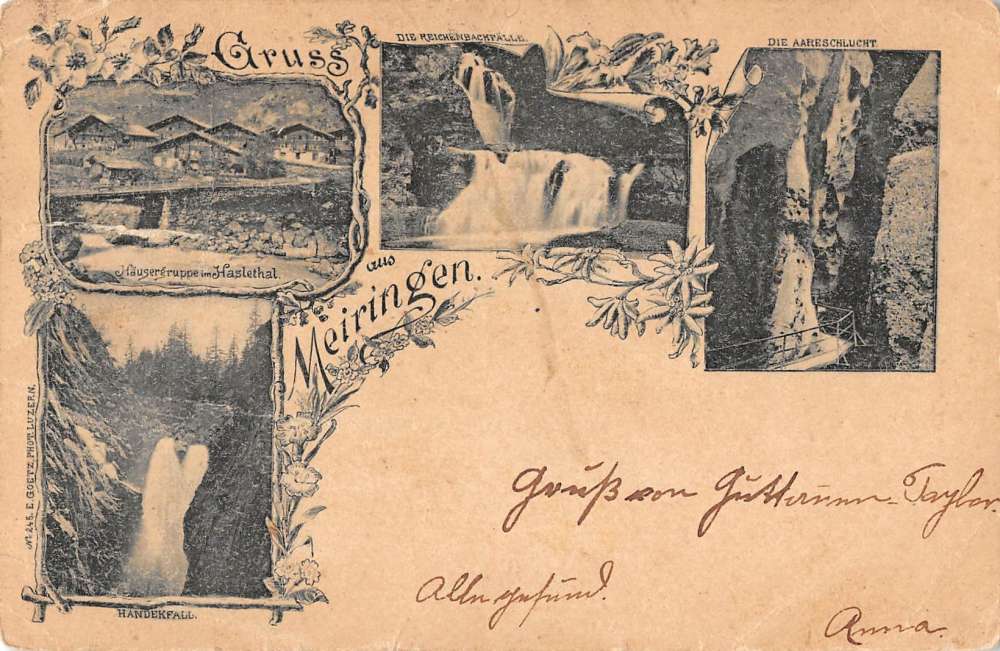 Gruss
aus
Meiringen.
DIE REICHENBACHFÄLLE.
DIE AARESCHLUCHT
Häusergruppe im Haslethal.
HANDEKFALL.
No. 245. E. GOETZ, PHOT. LUZERN.
Gruß von Guttannen-
Alle gesund.
Anna.